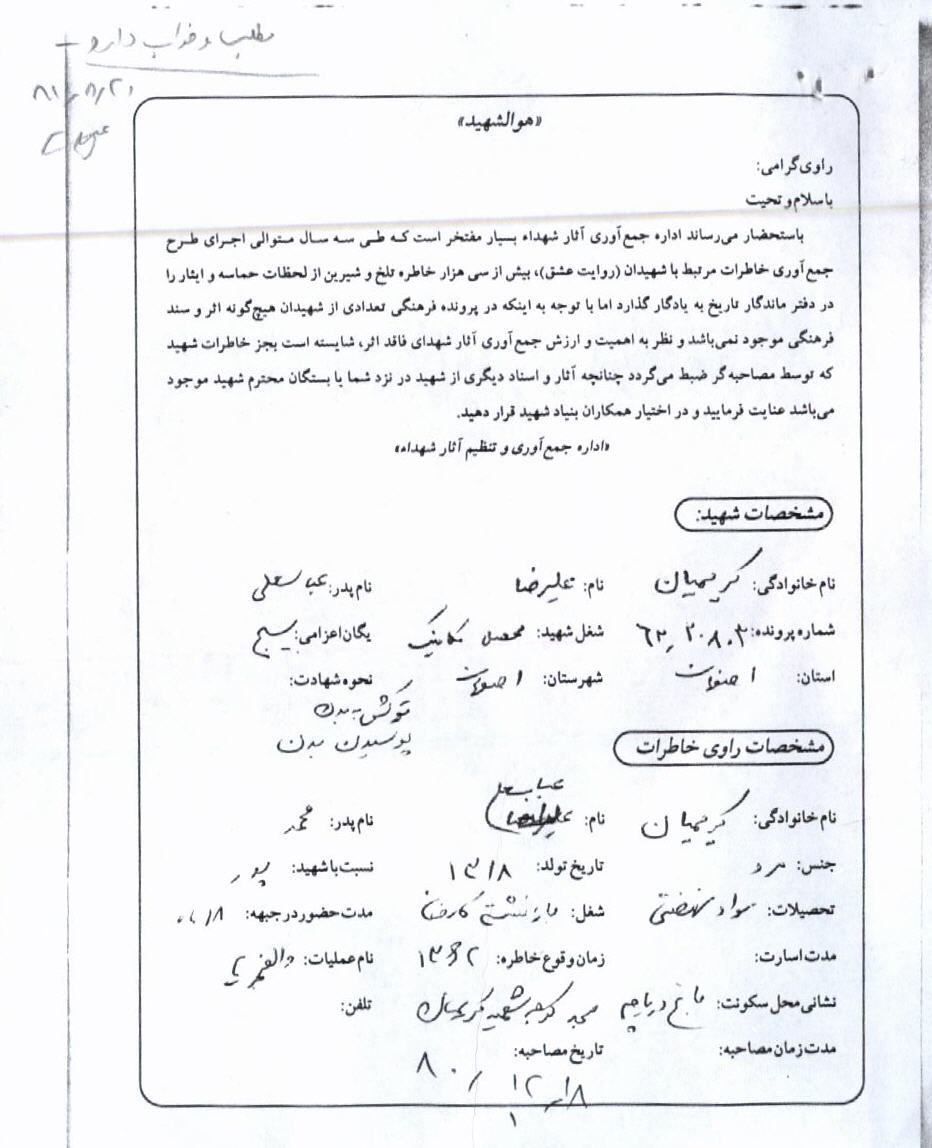 مطلب و خواب دارد
۸۱/۸/۲۰
«هوالشهید»
راوی گرامی:
باسلام و تحیت
باستحضار می‌رساند اداره جمع‌آوری آثار شهداء بسیار مفتخر است که طی سه سال متوالی اجرای طرح
جمع‌آوری خاطرات مرتبط با شهیدان (روایت عشق)، بیش از سی هزار خاطره تلخ و شیرین از لحظات حماسه و ایثار را
در دفتر ماندگار تاریخ به یادگار گذارد اما با توجه به اینکه در پرونده فرهنگی تعدادی از شهیدان هیچ‌گونه اثر و سند
فرهنگی موجود نمی‌باشد و نظر به اهمیت و ارزش جمع‌آوری آثار شهدای فاقد اثر، شایسته است بجز خاطرات شهید
که توسط مصاحبه‌گر ضبط می‌گردد چنانچه آثار و اسناد دیگری از شهید در نزد شما یا بستگان محترم شهید موجود
می‌باشد عنایت فرمایید و در اختیار همکاران بنیاد شهید قرار دهید.
«اداره جمع‌آوری و تنظیم آثار شهداء»
مشخصات شهید:
نام خانوادگی: کریمیان نام: علیرضا نام پدر: عباسعلی
شماره پرونده: شغل شهید: محصل مکانیک یگان اعزامی: بسیج
استان: اصفهان شهرستان: اصفهان نحوه شهادت:
پوسیدن بدن
مشخصات راوی خاطرات
عباسعلی
نام خانوادگی: کریمیان نام: علیرضا نام پدر: محمد
جنس: مرد تاریخ تولد: ۱۳۱۸ نسبت با شهید: پدر
تحصیلات: سواد نهضتی شغل: بازنشسته کارخانه مدت حضور در جبهه:
مدت اسارت: زمان و قوع خاطره: ۱۳۶۲ نام عملیات: والفجر ۲
نشانی محل سکونت: کوچه شهید کریمیان تلفن:
مدت زمان مصاحبه: تاریخ مصاحبه:
۸۰/۱۲/۱۸